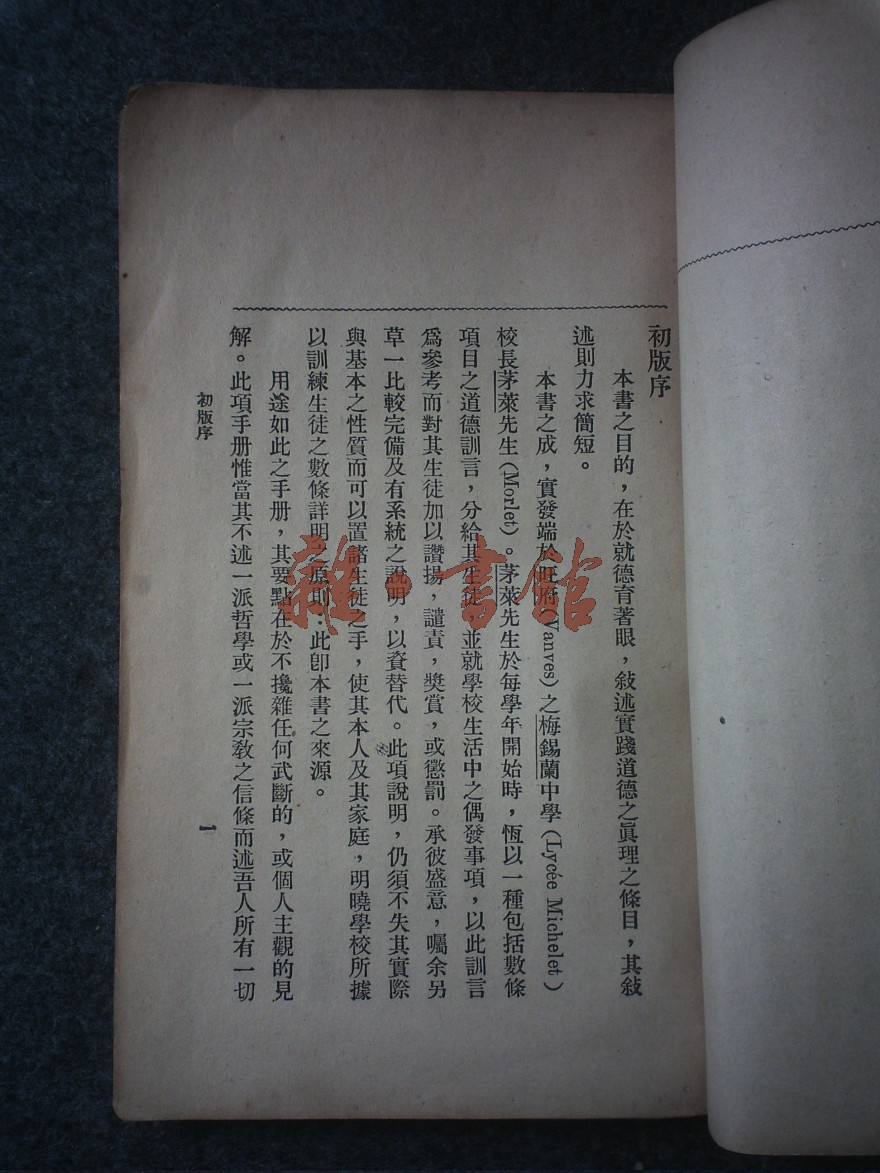 初版序
本書之目的，在於就德育著眼，敍述實踐道德之眞理之條目，其敍
述則力求簡短。
本書之成，實發端於旺府(Vanves)之梅錫蘭中學(Lycée Michelet)
校長茅萊先生(Morlet)。茅萊先生於每學年開始時，恆以一種包括數條
項目之道德訓言，分給其生徒，並就學校生活中之偶發事項，以此訓言
爲參考而對其生徒加以讚揚，譴責，獎賞，或懲罰。承彼盛意，囑余另
草一比較完備及有系統之說明，以資替代。此項說明，仍須不失其實際
與基本之性質而可以置諸生徒之手，使其本人及其家庭，明曉學校所據
以訓練生徒之數條詳明之原則：此卽本書之來源。
用途如此之手册，其要點在於不攙雜任何武斷的，或個人主觀的見
解。此項手册惟當其不述一派哲學或一派宗敎之信條而述吾人所有一切
初版序
一
雜·書館